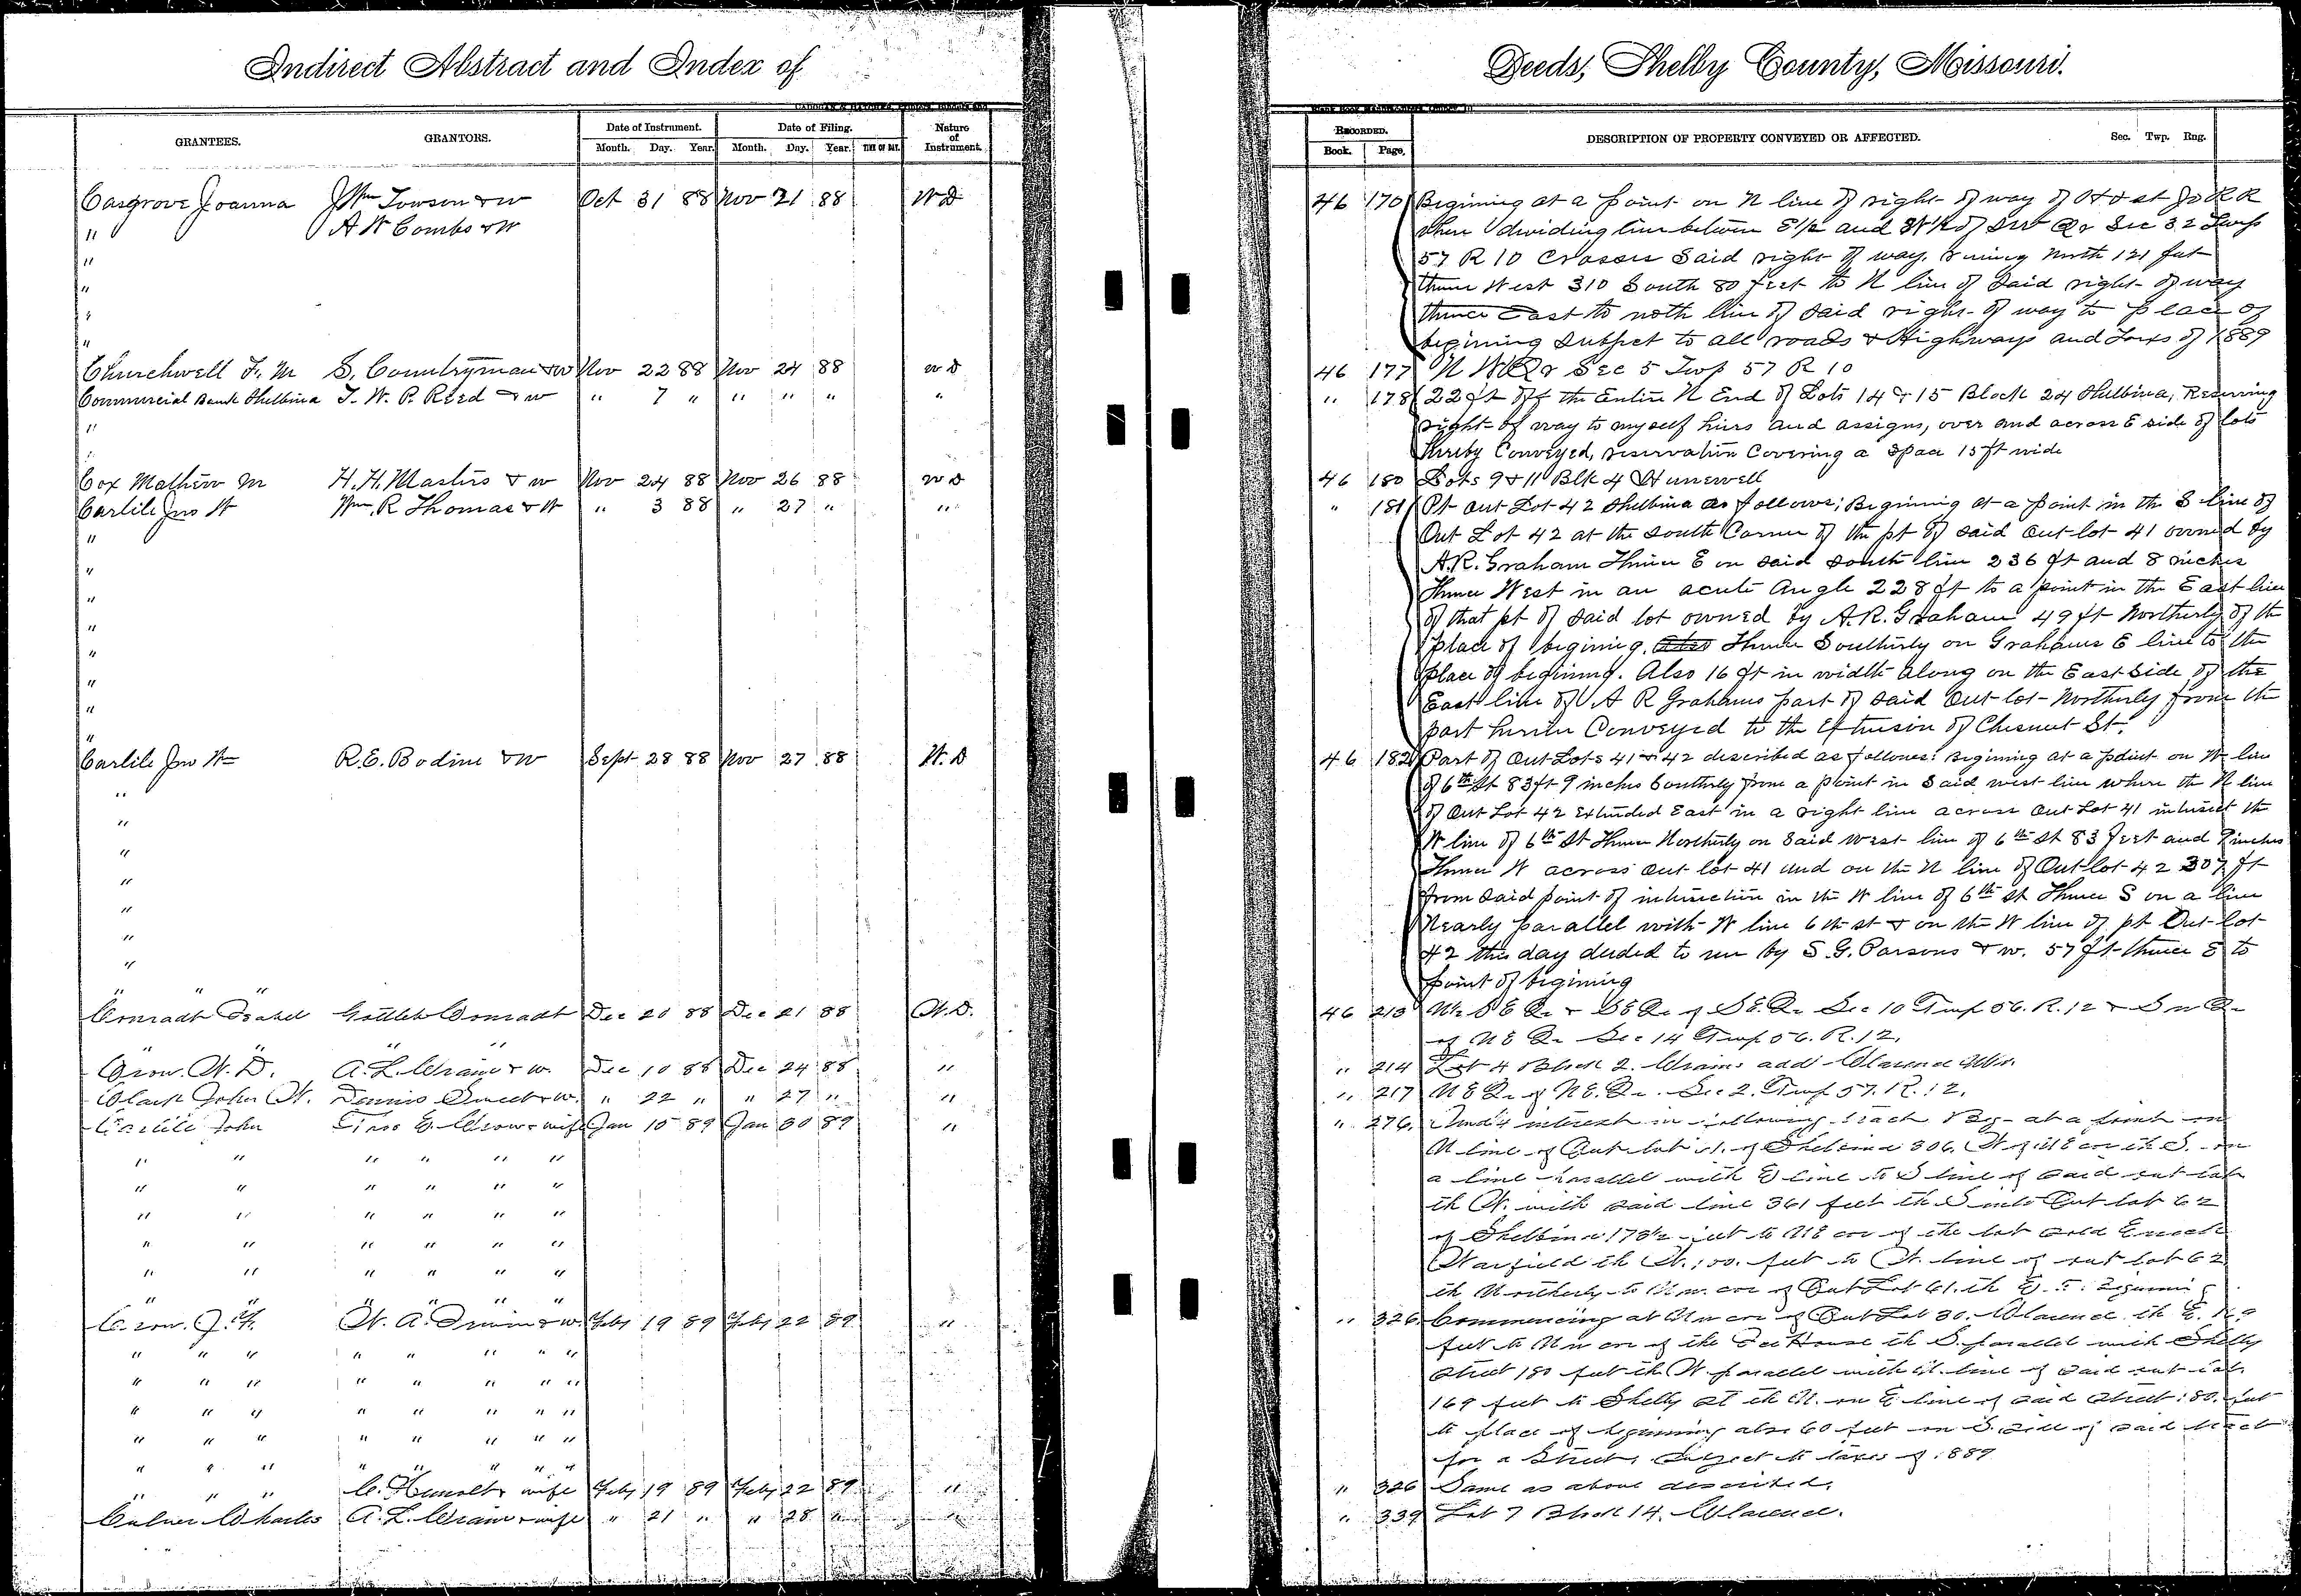 Indirect Abstract and Index of
Deeds, Shelby County, Missouri.
GRANTEES. GRANTORS. Date of Instrument. Date of Filing. Nature of Instrument.
Month. Day. Year. Month. Day. Year. TIME OF DAY.
RECORDED. DESCRIPTION OF PROPERTY CONVEYED OR AFFECTED. Sec. Twp. Rng.
Book. Page.
Casgrove Joanna J Wm Towson & w Oct 31 88 Nov 21 88 W D 46 170 Begining at a point on N line of right of way of H & St Jo R R
" A W Combs & W where dividing line between E 1/2 and W 1/2 of SW Qr Sec 32 Twp
" 57 R 10 crosses said right of way. runing North 121 feet
" thence West 310 South 80 feet to N line of said right of way
" thence East to noth line of said right of way to place of
" begining subject to all roads & Highways and Taxes of 1889
Churchwell F. M S. Countryman & W Nov 22 88 Nov 24 88 W D 46 177 N W Qr Sec 5 Twp 57 R 10
Commercial Bank Shelbina J. W. P. Reed & w " 7 " " " " " " 178 22 ft off the Entire N End of Lots 14 & 15 Block 24 Shelbina, Reserving
" right of way to myself heirs and assigns, over and across E side of lots
" hereby Conveyed, reservation Covering a space 15 ft wide
Cox Mathew M H. H. Masters & w Nov 24 88 Nov 26 88 W D 46 180 Lots 9 & 11 Blk 4 Hunnewell
Carlile Jno W Wm. R Thomas & W " 3 88 " 27 " " " 181 Pt out Lot 42 Shelbina as follows; Begining at a point in the S line of
" Out Lot 42 at the South Corner of the pt of said out lot 41 owned by
" A. R. Graham Thence E on said South line 236 ft and 8 inches
" Thence West in an acute Angle 228 ft to a point in the East line
" of that pt of said lot owned by A. R. Graham 49 ft Northerly of the
" place of begining. Thence Southerly on Grahams E line to the
" place of begining. Also 16 ft in width along on the East side of the
" East line of A R Grahams part of said Out lot Northerly from the
" part herein Conveyed to the Extension of Chesnut St.
Carlile Jno W R. E. Bodine & W Sept 28 88 Nov 27 88 W. D 46 182 Part of Out Lots 41 & 42 described as follows: Begining at a point on W line
" of 6th St 83 ft 9 inches Southerly from a point in said west line where the N line
" of Out Lot 42 Extended East in a right line across Out Lot 41 intersect the
" W line of 6th St Thence Northerly on said West line of 6th St 83 feet and 9 inches
" Thence W across out lot 41 and on the N line of Out lot 42 307 ft
" from said point of intersection in the W line of 6th St Thence S on a line
" Nearly parallel with W line 6th st & on the W line of pt Out lot
" 42 this day deeded to me by S. G. Parsons & w. 57 ft thence E to
" " " point of begining
Conradt Isabel Gottleb Conradt Dec 20 88 Dec 21 88 W. D. 46 213 S E Qr & S E Qr of S E. Qr Sec 10 Twp 56. R. 12 & S W Qr
" " " of N E Qr Sec 14 Twp 56. R. 12.
Crow. W. D. A. L. Crain & w. Dec 10 88 Dec 24 88 " " 214 Lot 4 Block 2. Crains add Clarence Mo.
Clark John W. Dennis Sweet & w. " 22 " " 27 " " " 217 N E Qr of N E. Qr. Sec 2. Twp 57. R. 12.
Carlile John E. Crow & wife Jan 15 89 Jan 30 89 " " 276. Und 1/4 interest in following tract Beg at a point on
" " " " " " N line of Out lot 61. of Shelbina 306. W of N E cor th S. on
" " " " " " a line parallel with E line to S line of said out lot
" " " " " " th W. with said line 361 feet th S into Out lot 62
" " " " " " of Shelbina 178 1/2 feet to N E cor of the lot sold Enoch
" " " " " " Warfield th W. 100. feet to W. line of out lot 62
" " " " " th Northerly to N w. cor of Out Lot 61. th E. to Beginning
Crow. J. W. W. A. Irwin & w. Feby 19 89 Feby 22 89 " " 326. Commencing at N w cor of Out Lot 30. Clarence th E. 169
" " " " " " " " feet to N w cor of the Ice House th S. parallel with Shelby
" " " " " " " " Street 180 feet th W. parallel with N. line of said out lot
" " " " " " " " 169 feet to Shelby St th N. on E line of said Street 180. feet
" " " " " " " " to place of beginning also 60 feet on S. side of said tract
" " " " " " " for a Street, Subject to taxes of 1889
" " " C. & wife Feby 19 89 Feby 22 89 " " 326 Same as above described.
Culver Charles A. L. Crain & wife " 21 " " 28 " " " 339 Lot 7 Block 14. Clarence.